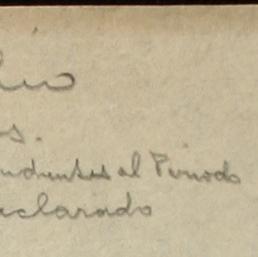 s.
ndientes al Periodo
eclarado